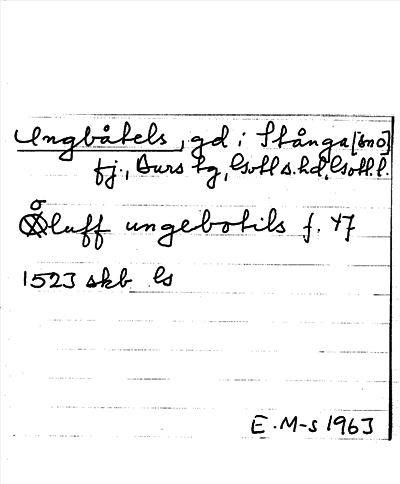 Ungbåtels, gd i Stånga [sno]
fj., Burs tg, Gotl. s. hd, Gotl. l.
Oluff ungebotils f. 47
1523 skb ls
E. M-s 1963